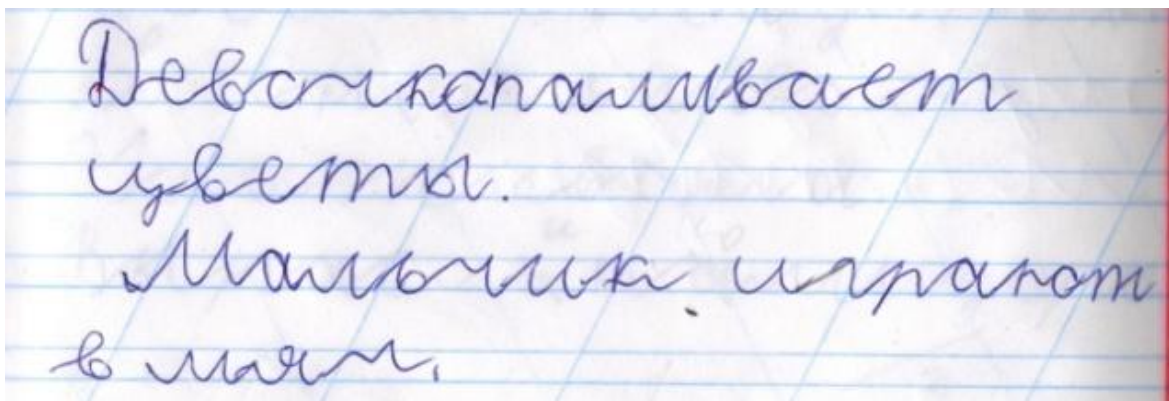 Девочкапаливает
цветы.
Мальчик играют
в мяч.